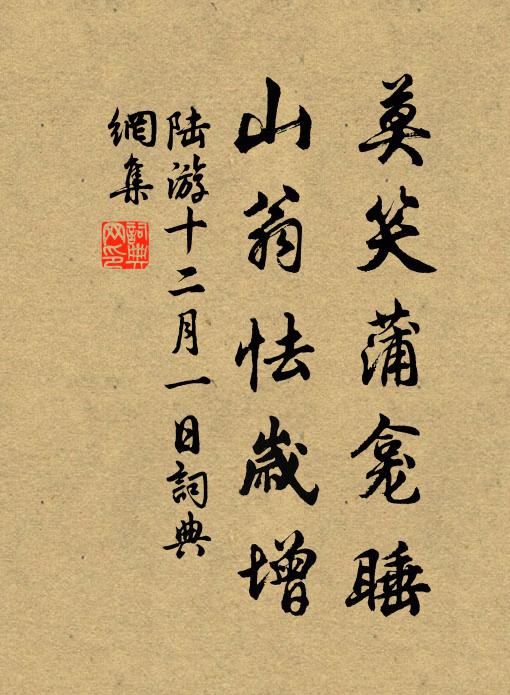 莫笑蒲龕睡
山翁怯歲增
陆游十二月一日詞典
網集
詞典网印